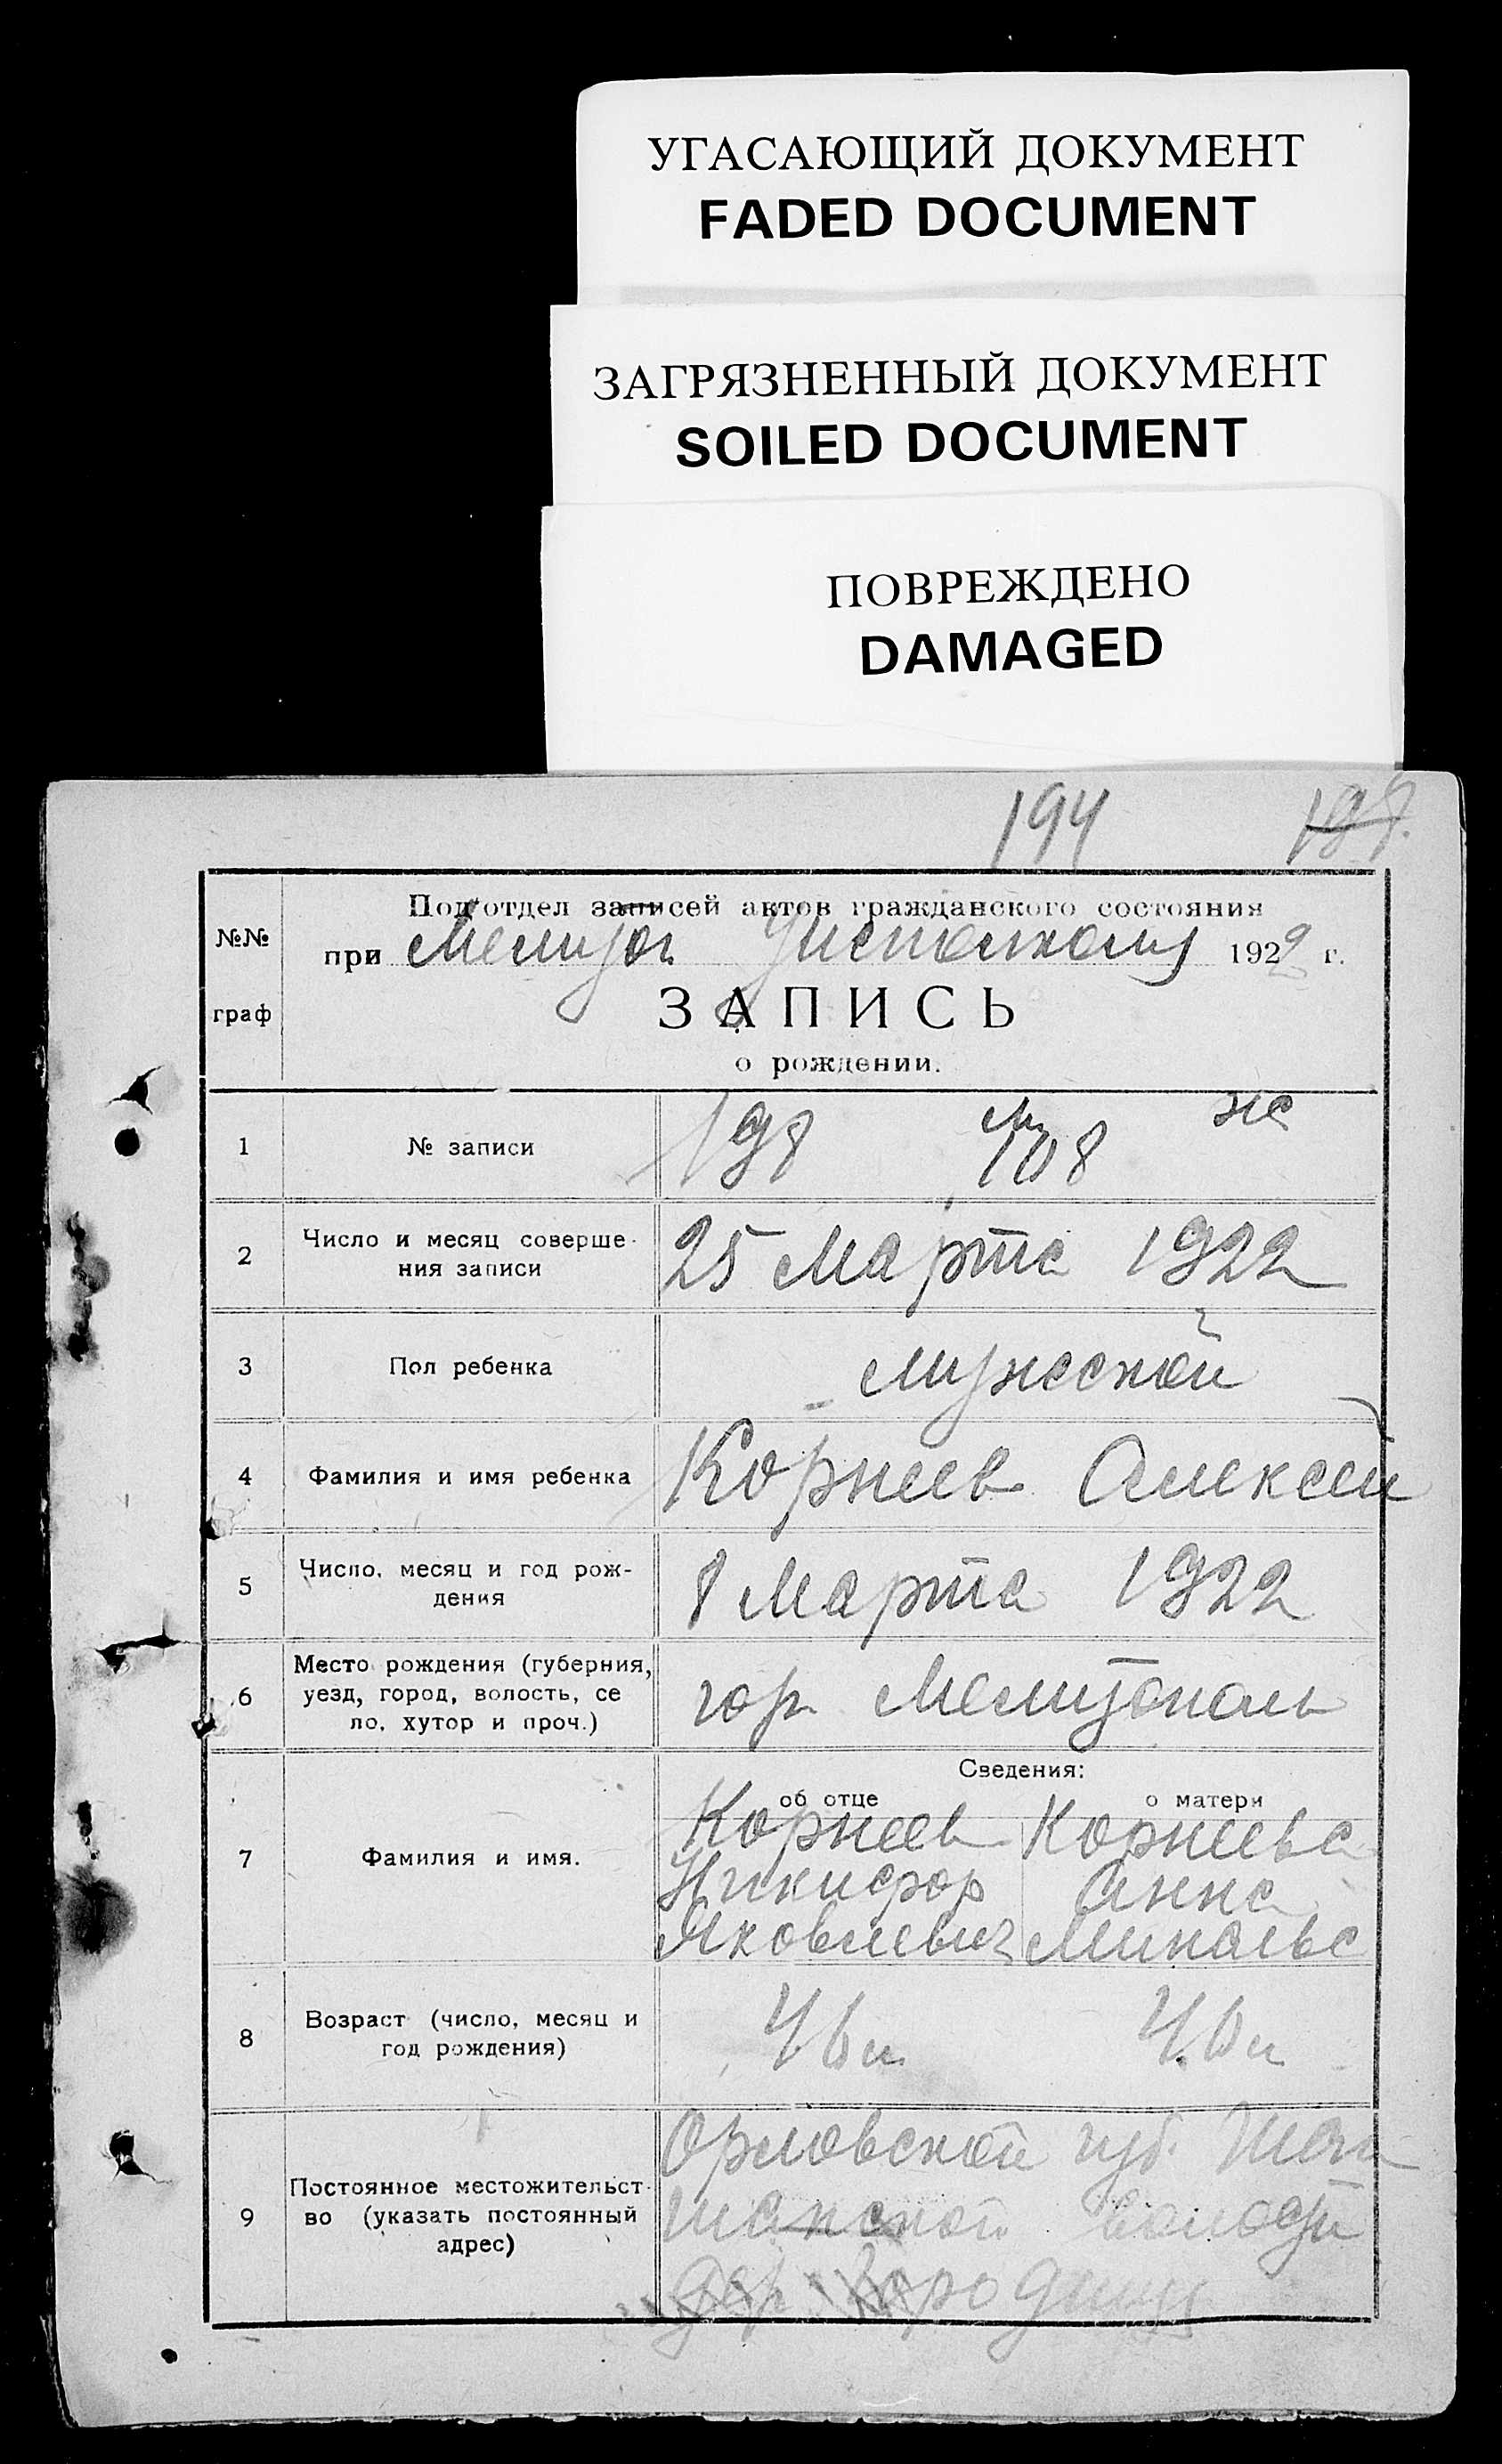 УГАСАЮЩИЙ ДОКУМЕНТ
FADED DOCUMENT
ЗАГРЯЗНЕННЫЙ ДОКУМЕНТ
SOILED DOCUMENT
ПОВРЕЖДЕНО
DAMAGED
194 198.
Подотдел записей актов гражданского состояния
№№ при 1922 г.
граф ЗАПИСЬ
о рождении.
1 № записи 198 108
2 Число и месяц соверше- 25 Марта 1922
ния записи
3 Пол ребенка мужской
4 Фамилия и имя ребенка Корнеев Алексей
5 Число, месяц и год рож- 8 Марта 1922
дения
Место рождения (губерния,
6 уезд, город, волость, се гор. Мелитополь
ло, хутор и проч.)
Сведения:
об отце о матери
Корнеев Корнеева
7 Фамилия и имя. Никифор Анна
Яковлевич
Возраст (число, месяц и
8 год рождения)
Орловской губ.
Постоянное местожительст-
9 во (указать постоянный волости
адрес)
дер.